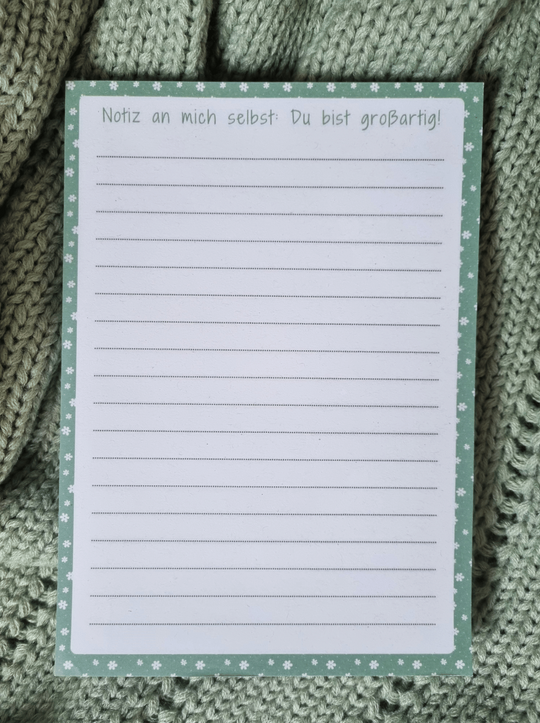 Notiz an mich selbst: Du bist großartig!